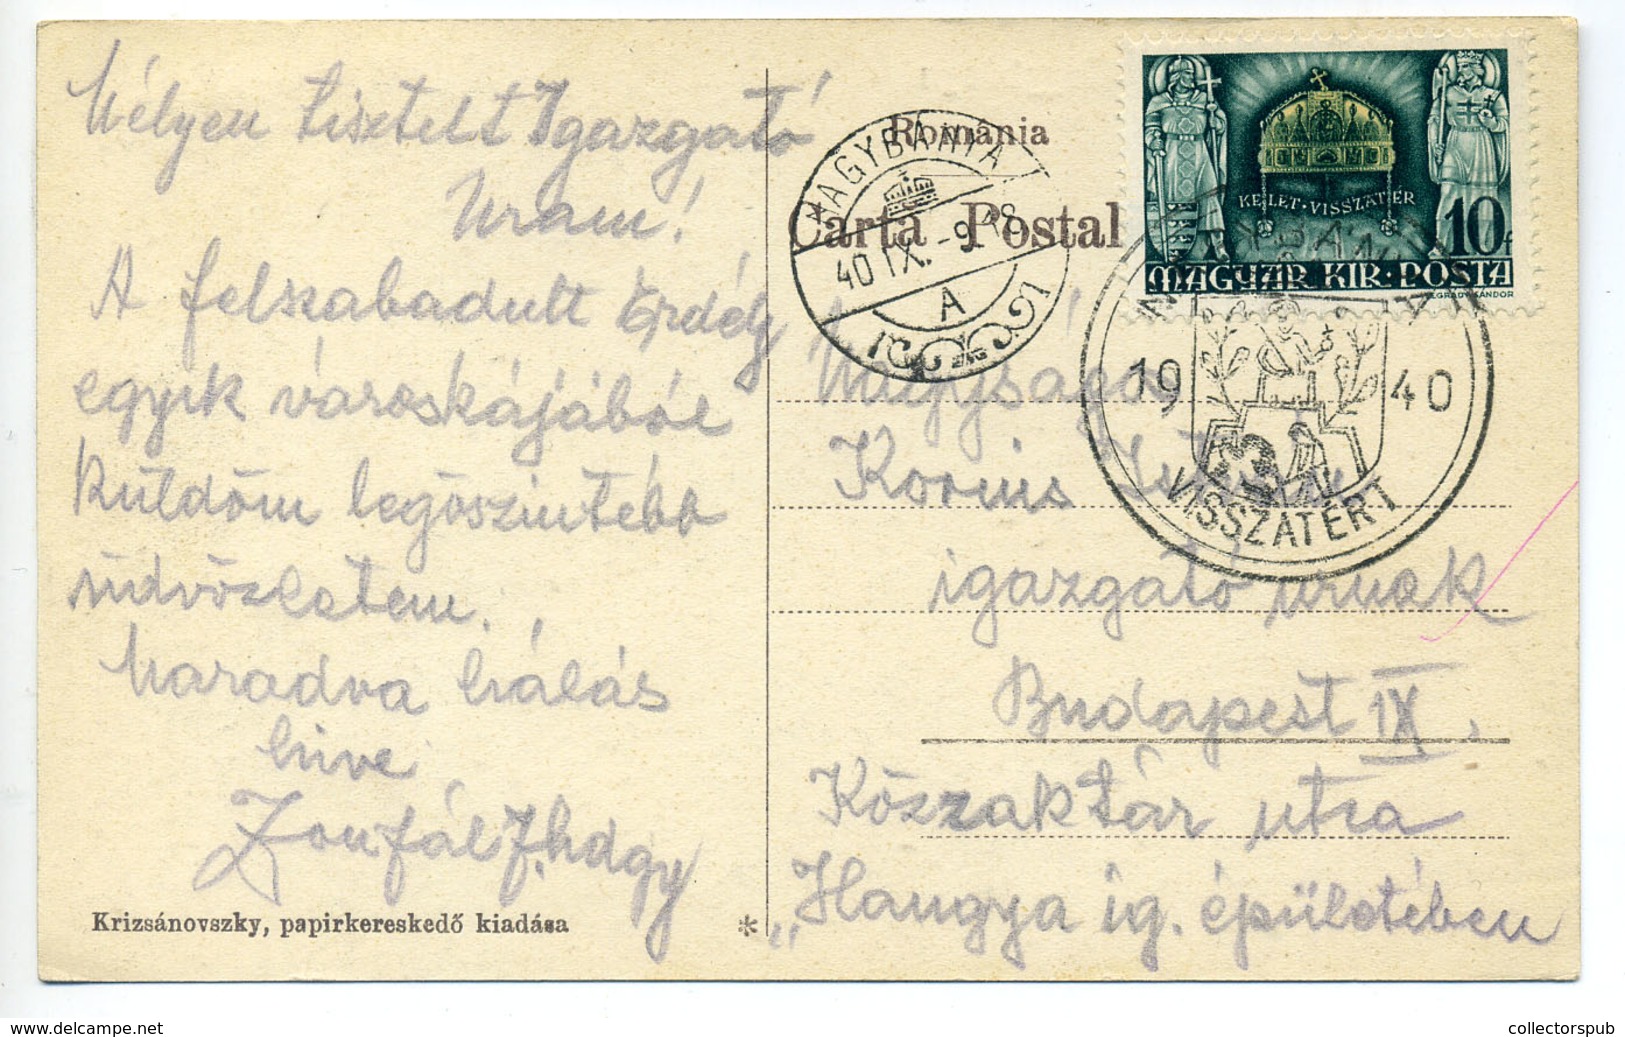 Mélyen tisztelt Igazgató
Uram!
A felszabadult Erdély
egyik városkájából
küldöm legőszintébb
üdvözletem.
Maradva hálás
híve
Krizsánovszky, papirkereskedő kiadása
România
Carta Postal
NAGYBÁNYA
40 IX. -9 18
A
KELET · VISSZATÉR
10f
MAGYAR · KIR · POSTA
LÉGRÁDY SÁNDOR
NAGYBÁNYA
1940
VISSZATÉRT
Nagyságos
István
igazgató úrnak
Budapest IX.
Közraktár utca
„Hangya ig. épületében
delcampe.net
collectorspub